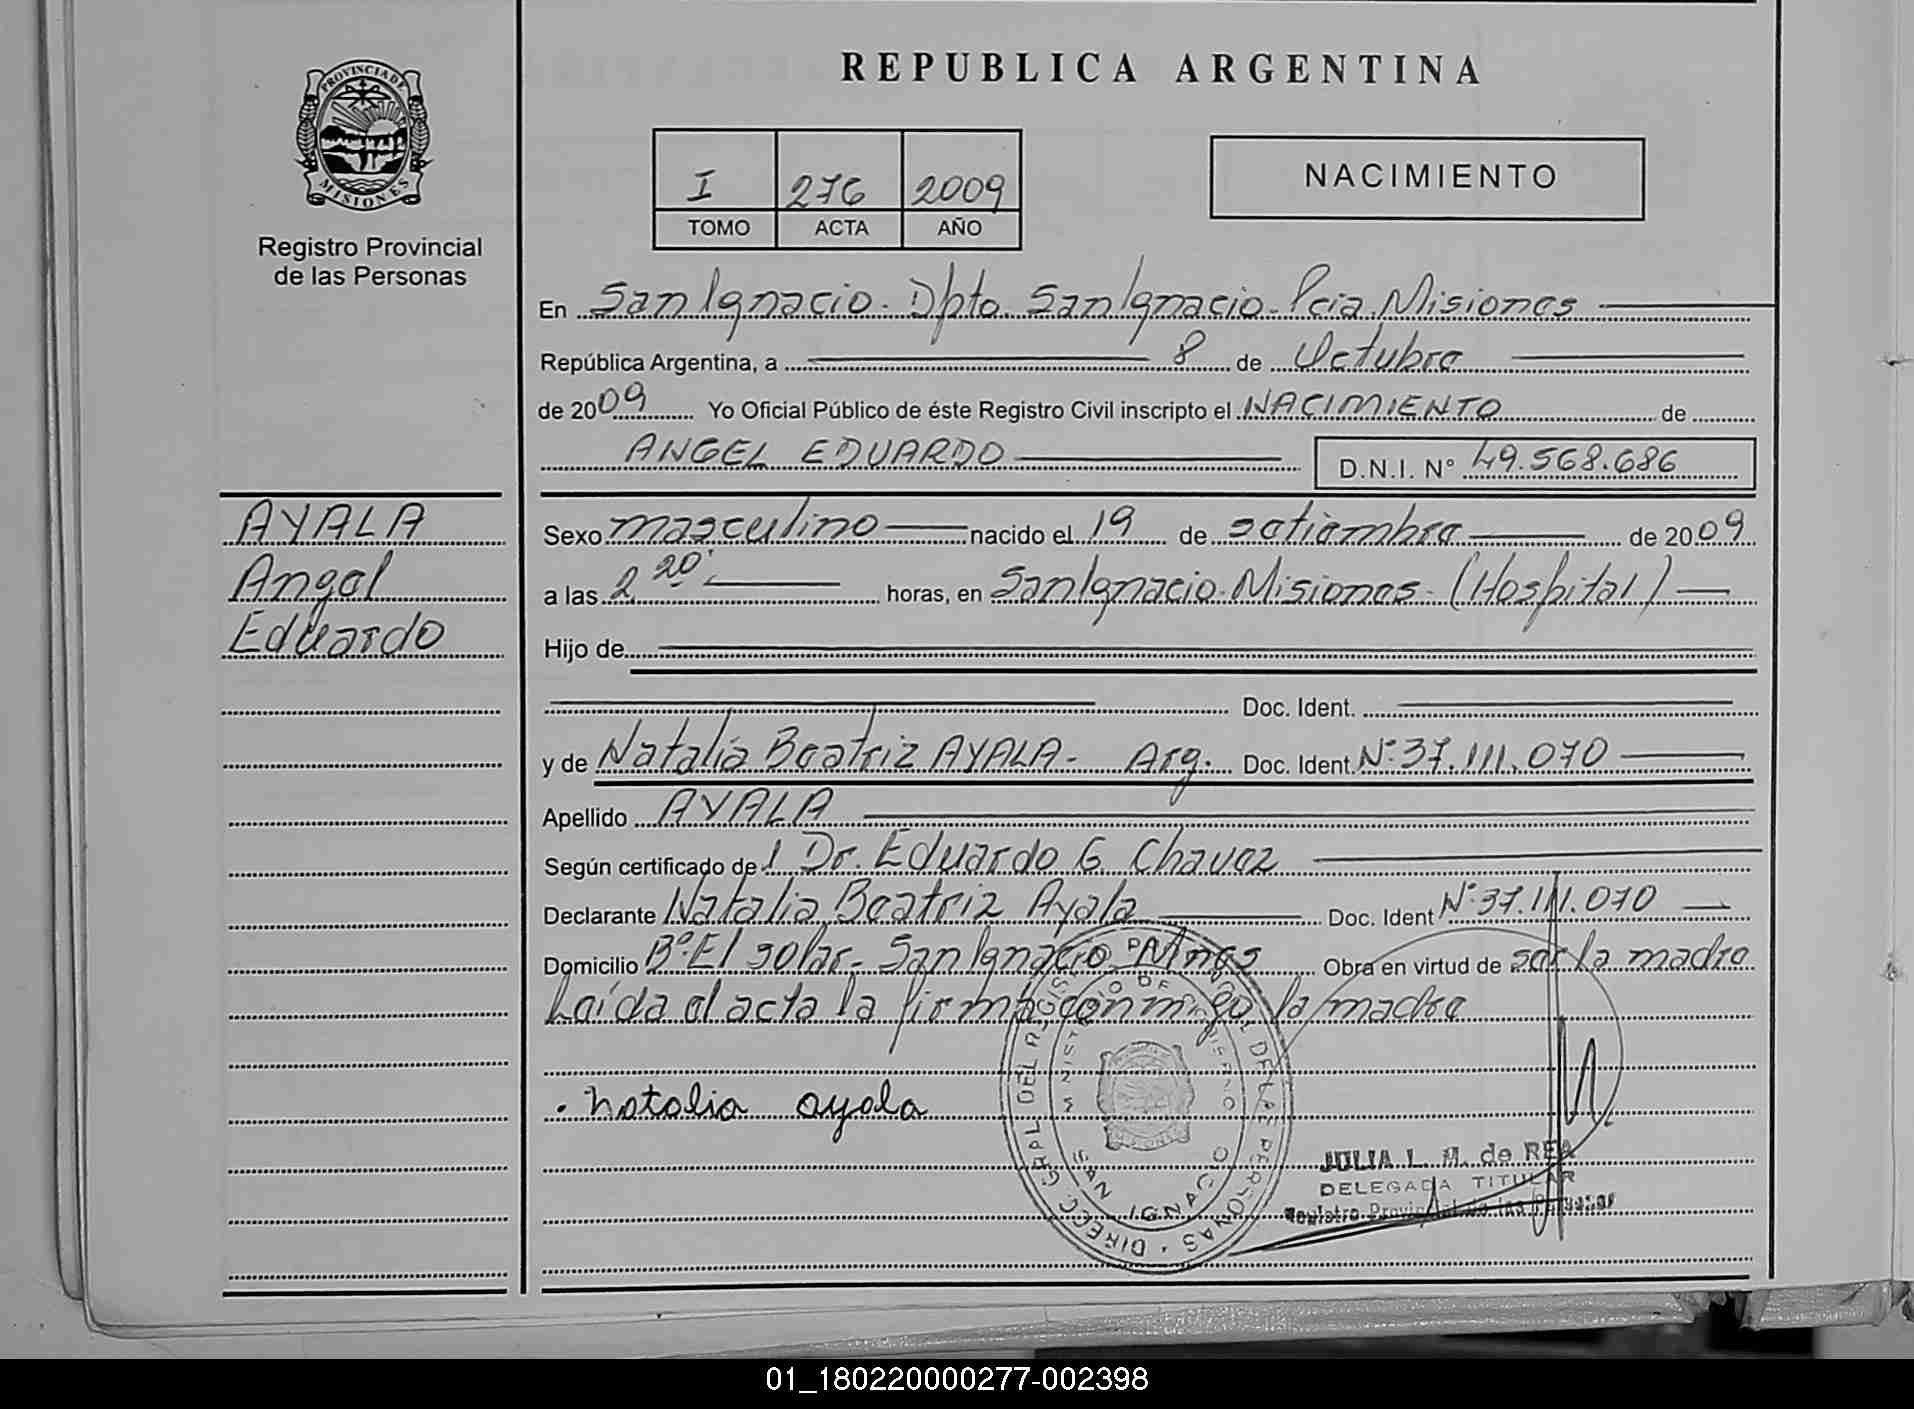 PROVINCIA DE
MISIONES
Registro Provincial
de las Personas
REPUBLICA ARGENTINA
I 276 2009
TOMO ACTA AÑO
NACIMIENTO
En San Ignacio - Dpto. San Ignacio - Pcia. Misiones
República Argentina, a 8 de Octubre
de 2009 Yo Oficial Público de éste Registro Civil inscripto el NACIMIENTO de
ANGEL EDUARDO D.N.I. N° 49.568.686
AYALA
Angel
Eduardo
Sexo masculino nacido el 19 de setiembre de 2009
a las 2 20' horas, en San Ignacio - Misiones - (Hospital)
Hijo de
Doc. Ident.
y de Natalia Beatriz AYALA - Arg. Doc. Ident. N° 37.111.070
Apellido AYALA
Según certificado del Dr. Eduardo G. Chavez
Declarante Natalia Beatriz Ayala Doc. Ident N° 37.111.070
Domicilio B° El solar - San Ignacio Mnes Obra en virtud de ser la madre
Leída el acta la firma conmigo la madre
natalia ayala
DIRECC. GRAL. DEL REGISTRO PROVINCIAL DE LAS PERSONAS
MINISTERIO DE GOBIERNO
SAN IGNACIO
MISIONES
JULIA L. M. de REA
DELEGADA TITULAR
Registro Provincial de las Personas
01_180220000277-002398